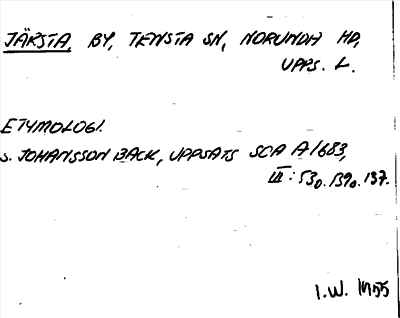 JÄRSTA, BY, TENSTA SN, NORUNDA HD,
UPPS. L.
ETYMOLOGI.
S. JOHANSSON BACK, UPPSATS SCA A1683,
III: 530. 1390. 137.
I.W. 1955